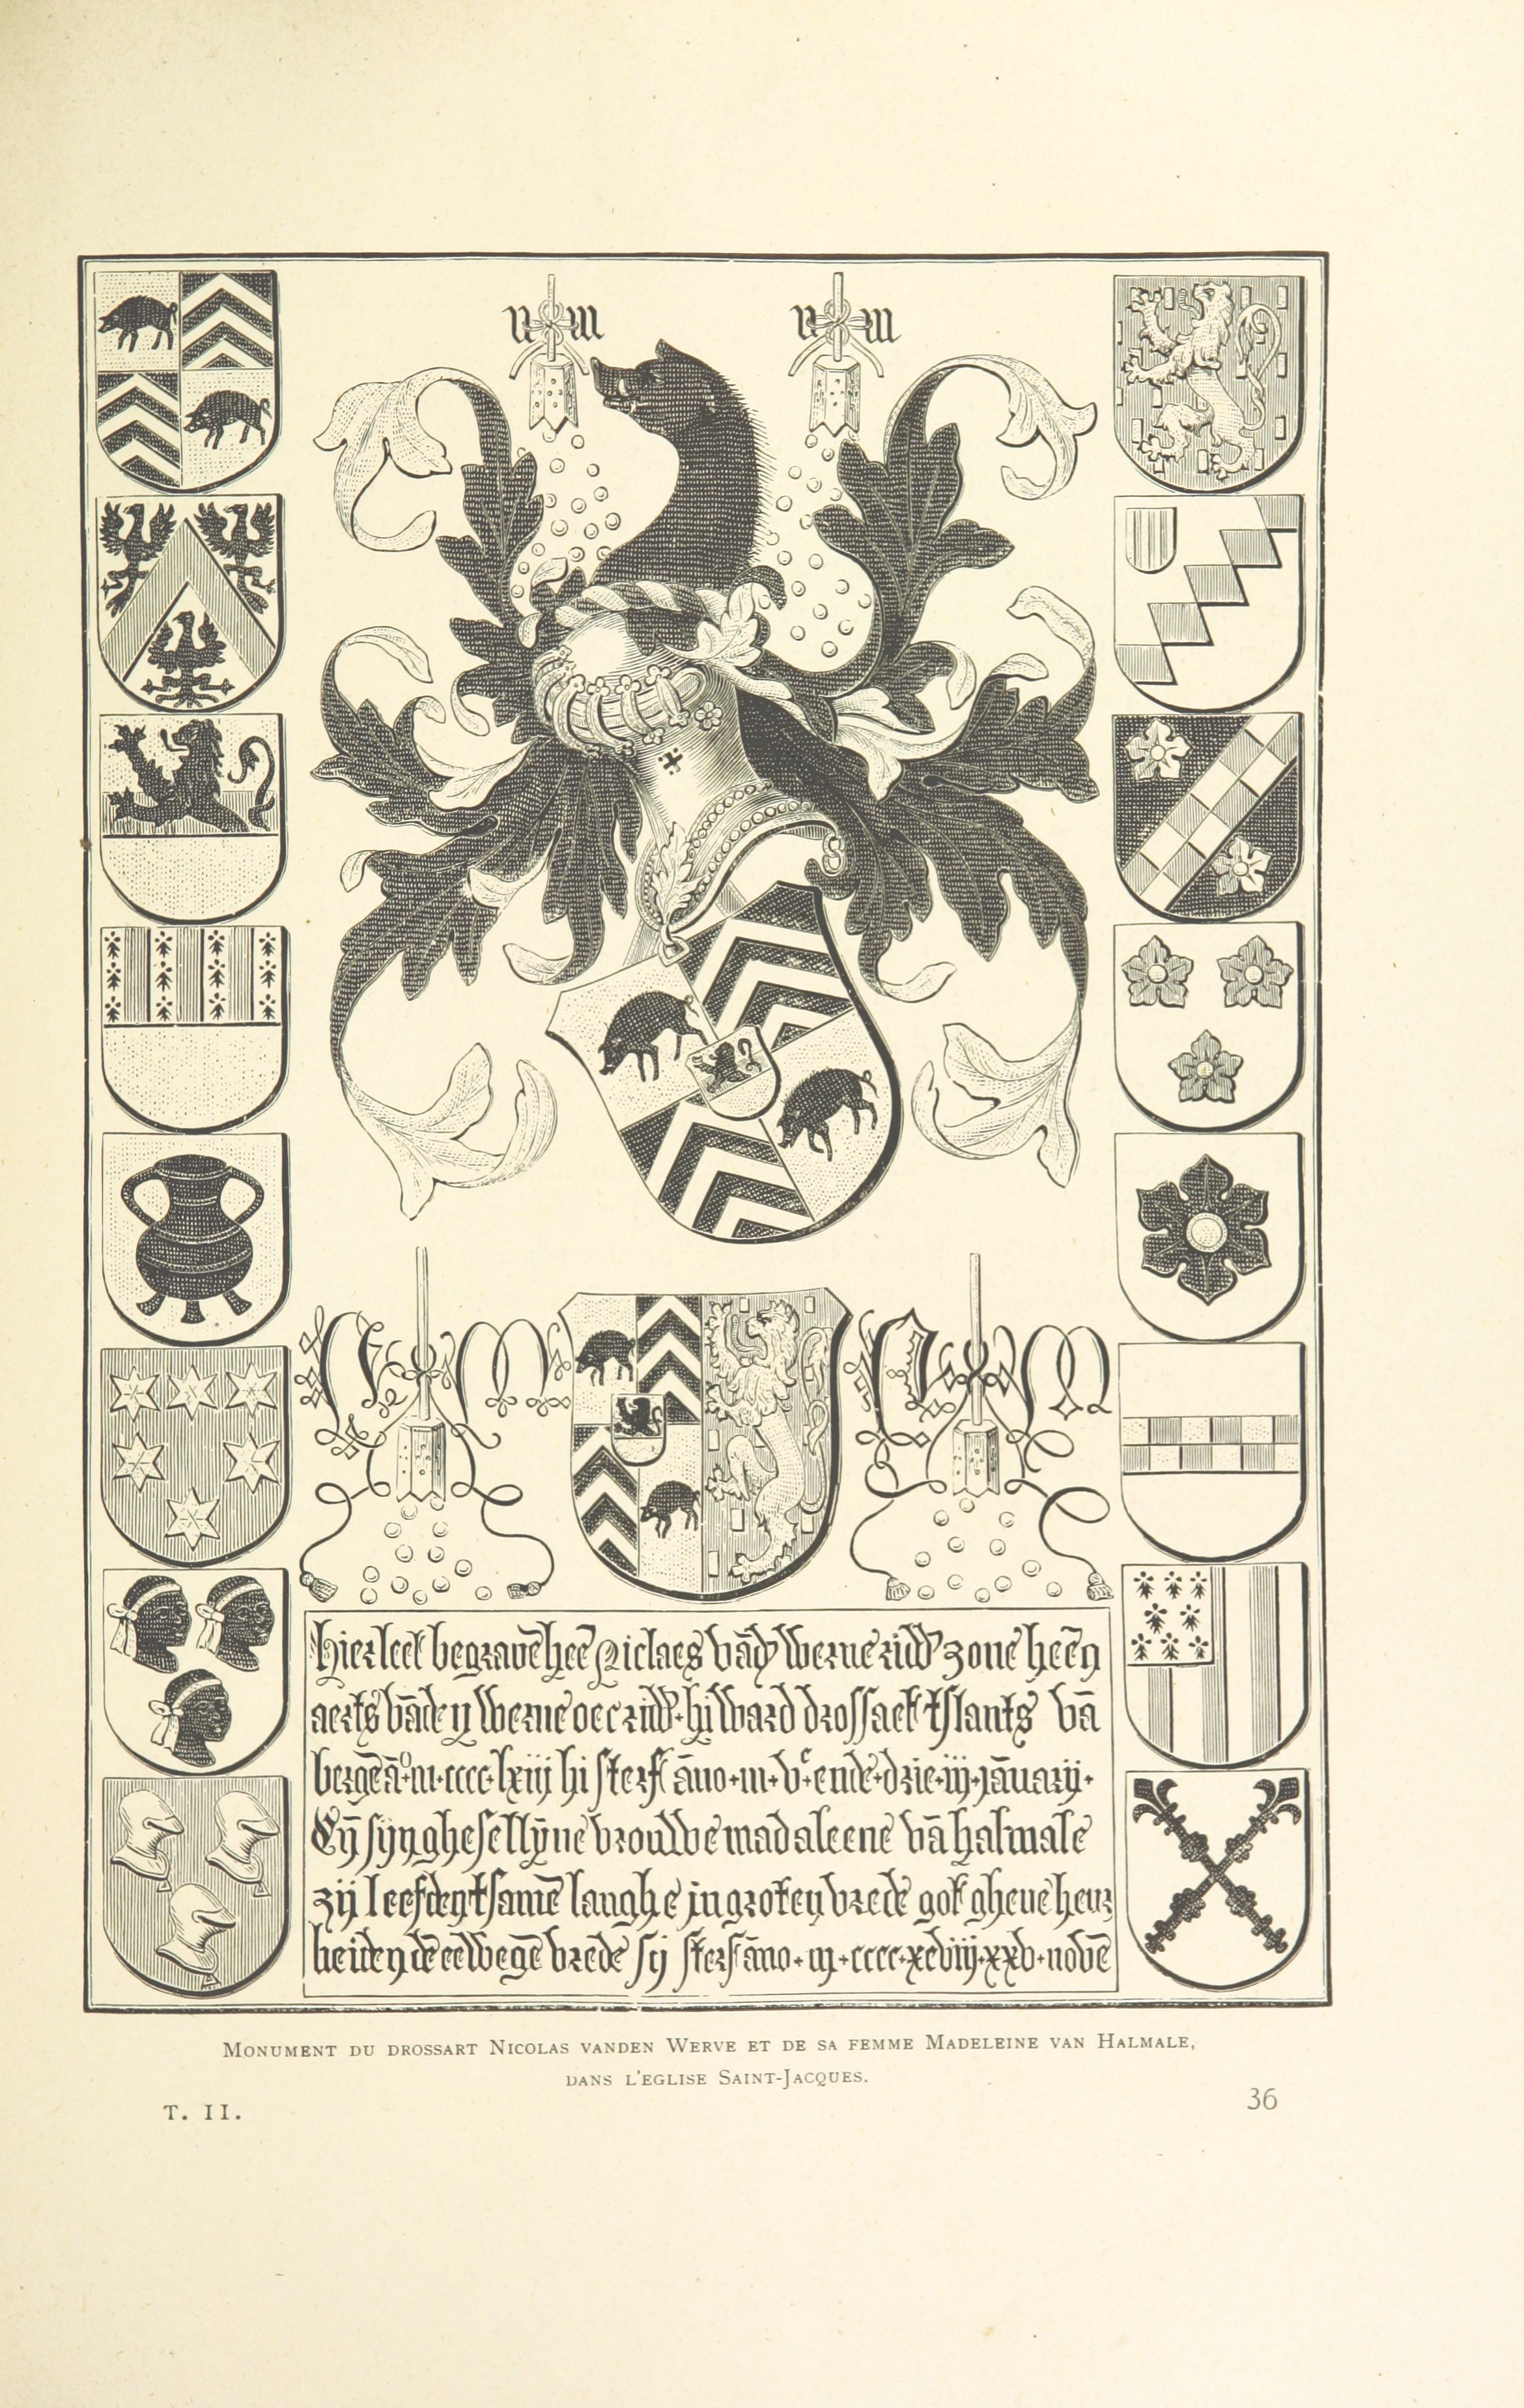 n m n m
N M N M
hier leet begravē heē Niclaes vādē Werve ridd' zone heēn
aerts vādēn Werve oec ridd' hi ward drossaet tslants vā
bergē āo m cccc lxiij hi sterf āno m vc ende drie iij january
Eñ syn ghesellyne vrouwe madaleene vā halmale
zij leefden tsamē langhe in groten vrede got gheve heur
beiden dē eewegē vrede sij sterf āno m cccc xcviij xxv novē
Monument du drossart Nicolas vanden Werve et de sa femme Madeleine van Halmale,
dans l'eglise Saint-Jacques.
T. II. 36